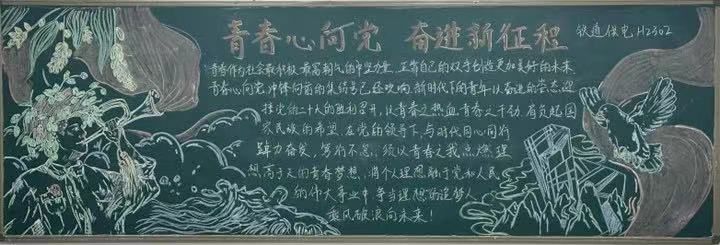 青春心向党 奋进新征程
铁道供电H2302
青春作为社会最积极、最富朝气的中坚力量,正靠自己的双手创造更加美好的未来
青春心向党,冲锋向前的集结号已经吹响,新时代下的青年以奋进的姿态迎
接党的二十大的胜利召开,以青春之热血,青春之干劲,肩负起国
家民族的希望,在党的领导下,与时代同心同行
踔力奋发,笃行不怠,须以青春之我,点燃理
想高于天的青春梦想,将个人理想融于党和人民
的伟大事业中,争当理想的追梦人
乘风破浪向未来!